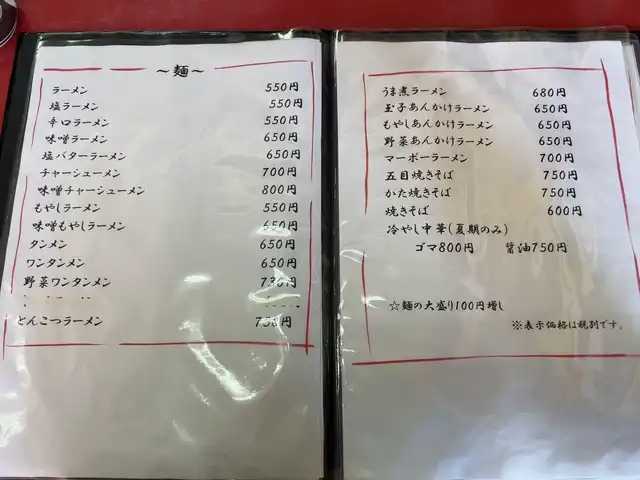 ～麺～
ラーメン 550円
塩ラーメン 550円
辛口ラーメン 550円
味噌ラーメン 650円
塩バターラーメン 650円
チャーシューメン 700円
味噌チャーシューメン 800円
もやしラーメン 550円
味噌もやしラーメン 650円
タンメン 650円
ワンタンメン 650円
野菜ワンタンメン 730円
とんこつラーメン 750円
うま煮ラーメン 680円
玉子あんかけラーメン 650円
もやしあんかけラーメン 650円
野菜あんかけラーメン 650円
マーボーラーメン 700円
五目焼きそば 750円
かた焼きそば 750円
焼きそば 600円
冷やし中華(夏期のみ)
ゴマ800円 醤油750円
☆麺の大盛り100円増し
※表示価格は税別です。